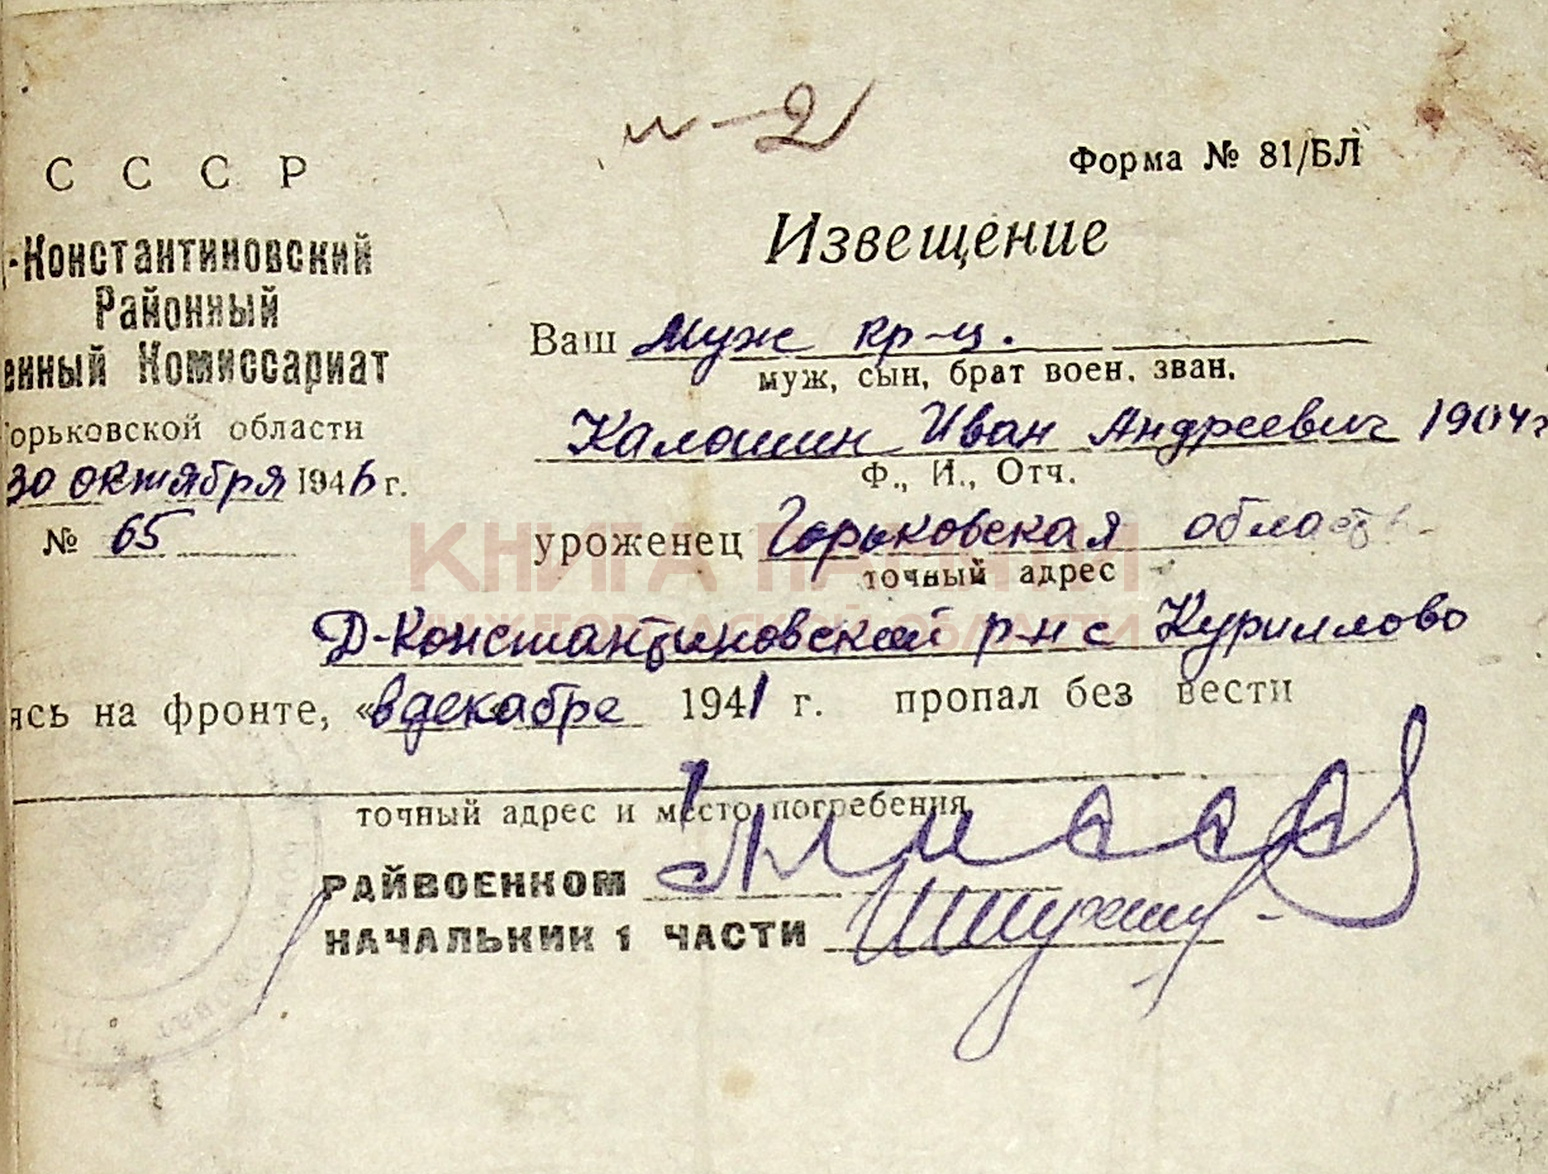 н-2
Форма № 81/БЛ
СССР
-Константиновский
Районный
енный Комиссариат
Горьковской области
30 октября 1946 г.
№ 65
Извещение
Ваш муж кр-ц.
муж, сын, брат воен. зван.
Калошин Иван Андреевич 1904 г
Ф., И., Отч.
уроженец Горьковская область
точный адрес
Д-Константиновский р-н с Куриллово
ясь на фронте, «в декабре 1941 г. пропал без вести
точный адрес и место погребения
РАЙВОЕНКОМ
НАЧАЛЬНИК 1 ЧАСТИ
КНИГА ПАМЯТИ
НИЖЕГОРОДСКОЙ ОБЛАСТИ